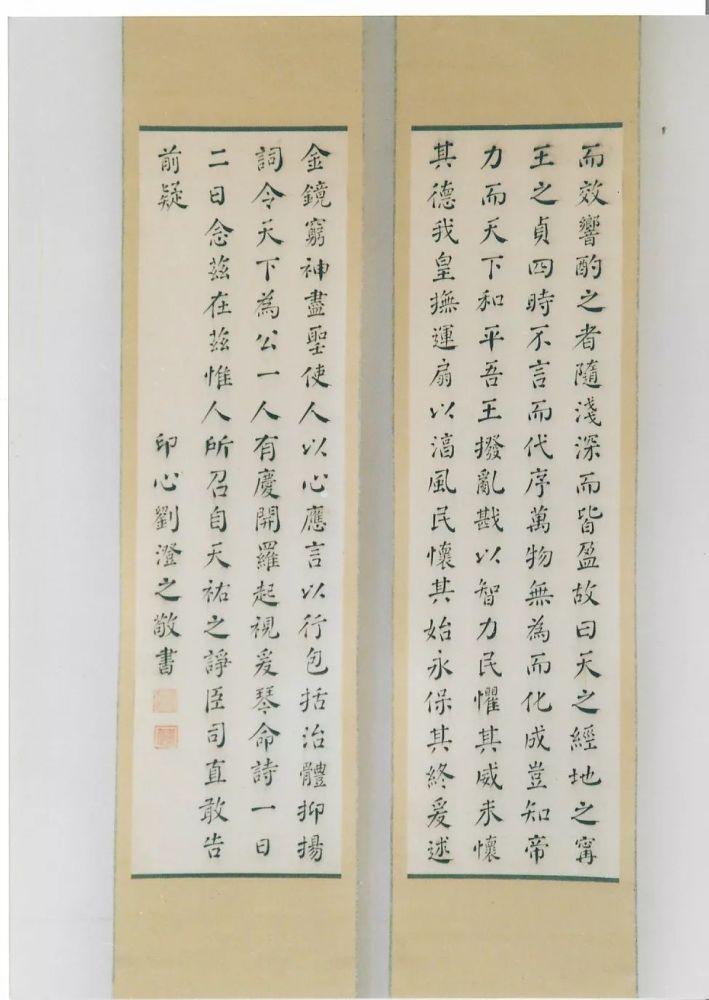 而效響酌之者隨淺深而皆盈故曰天之經地之寗
王之貞四時不言而代序萬物無為而化成豈知帝
力而天下和平吾王撥亂戡以智力民懼其威未懷
其德我皇撫運扇以淳風民懷其始永保其終爰述
金鏡窮神盡聖使人以心應言以行包括治體抑揚
詞令天下為公一人有慶開羅起視爰琴命詩一日
二日念茲在茲惟人所召自天祐之諍臣司直敢告
前疑
印心劉澄之敬書